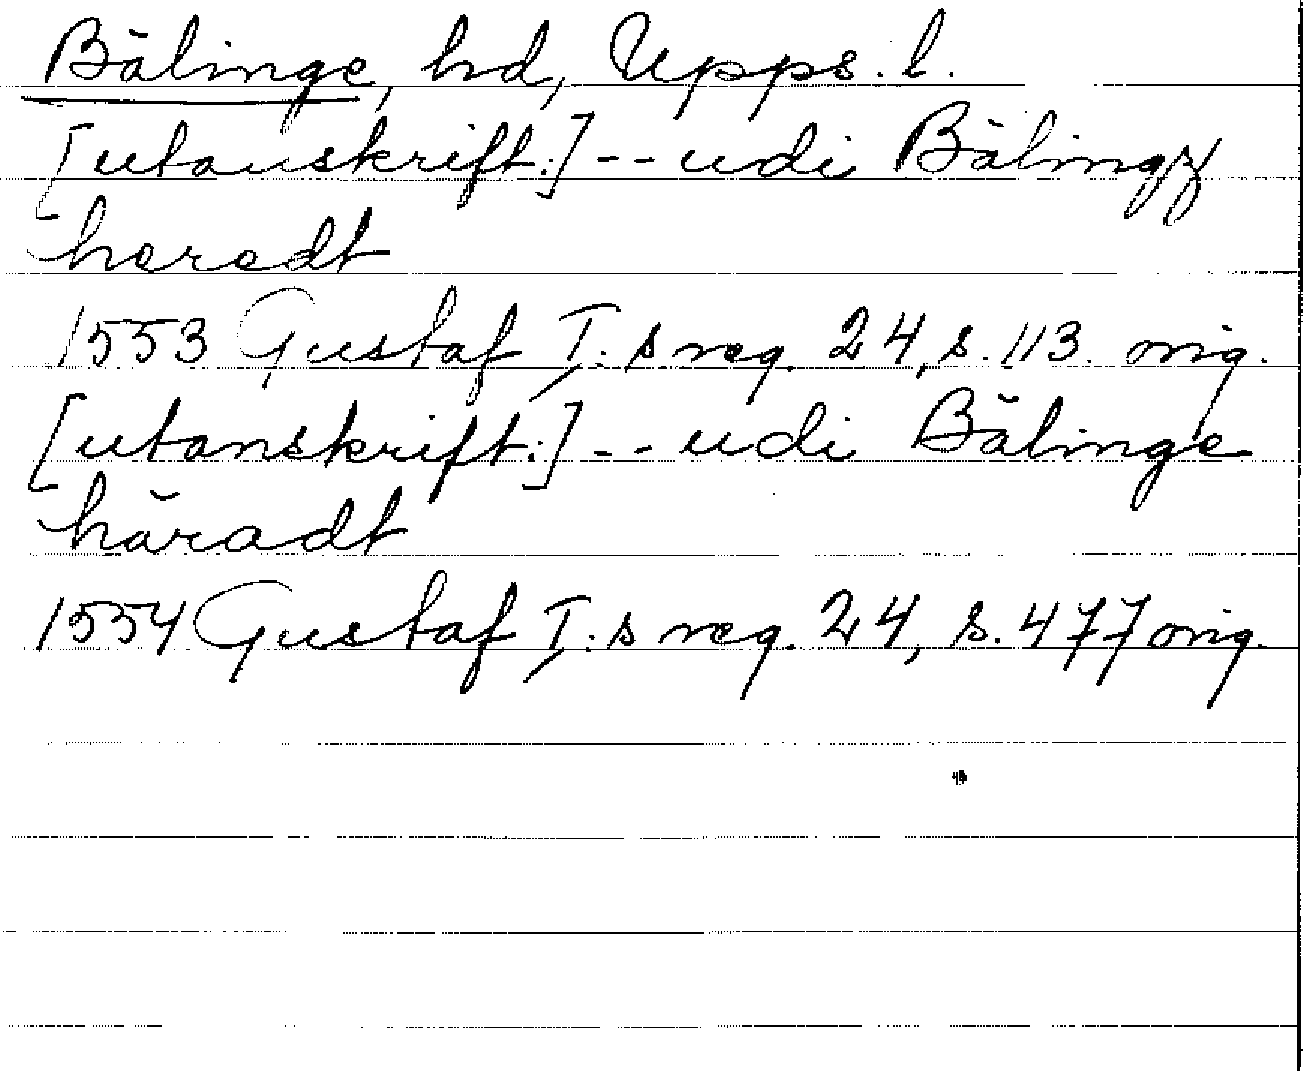 Bälinge, hd, Upps. l.
[utanskrift:] -- udi Bälingz
heredt
1553 Gustaf I:s reg. 24, s. 113. orig.
[utanskrift:] -- udi Bälinge
häradt
1554 Gustaf I:s reg. 24, s. 477 orig.